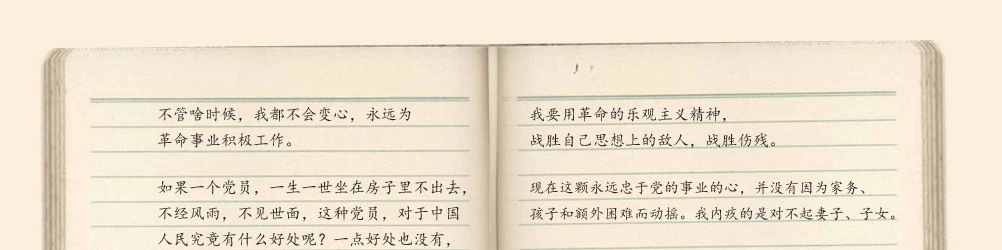 不管啥时候，我都不会变心，永远为
革命事业积极工作。
如果一个党员，一生一世坐在房子里不出去，
不经风雨，不见世面，这种党员，对于中国
人民究竟有什么好处呢？一点好处也没有，
我要用革命的乐观主义精神，
战胜自己思想上的敌人，战胜伤残。
现在这颗永远忠于党的事业的心，并没有因为家务、
孩子和额外困难而动摇。我内疚的是对不起妻子、子女。